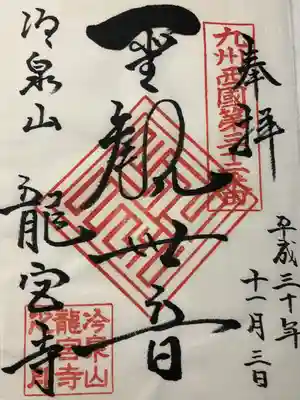 奉拝
九州西國第三十三番
平成三十年
十一月三日
聖観世音
冷泉山
龍宮寺
冷泉山
龍宮寺
之印